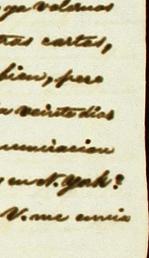 ya veamos
tras cartas,
bien, pero
n veinte dias
nunciacion
y en N. York?
V. me envia